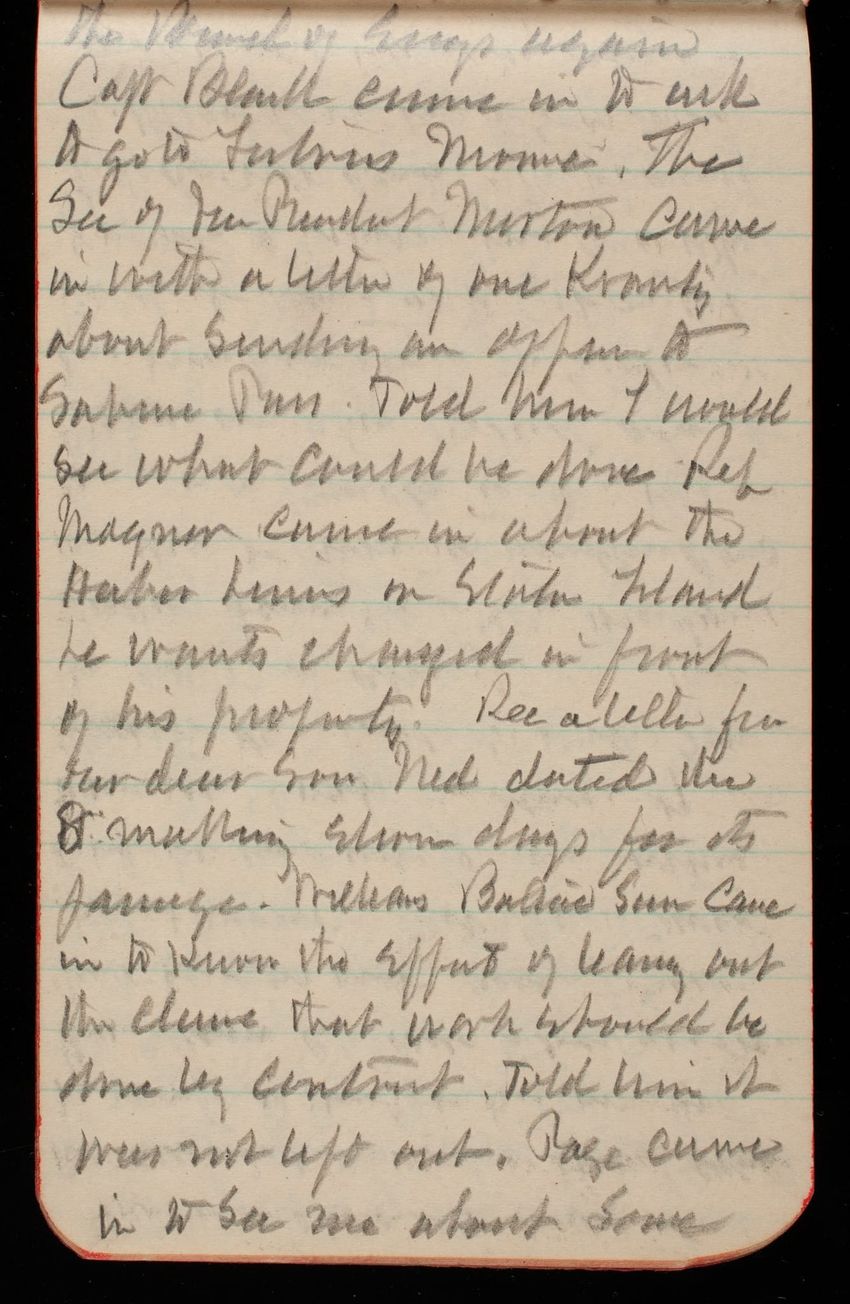 the Board of Engrs again
Capt Black came in to ask
to go to Fortress Monroe. The
Sec of Vice President Morton came
in with a letter of one Krantz
about sending an officer to
Sabine Pass. Told him I would
see what could be done Rep
Magner came in about the
Harbor Lines on Staten Island
he wants changed in front
of his property. Rec a letter from
our dear Son Ned dated the
8" making eleven days for its
passage. Williams came
in to know the effect of leaving out
the clause that work should be
done by contract. Told him it
was not left out. Page came
in to see me about some